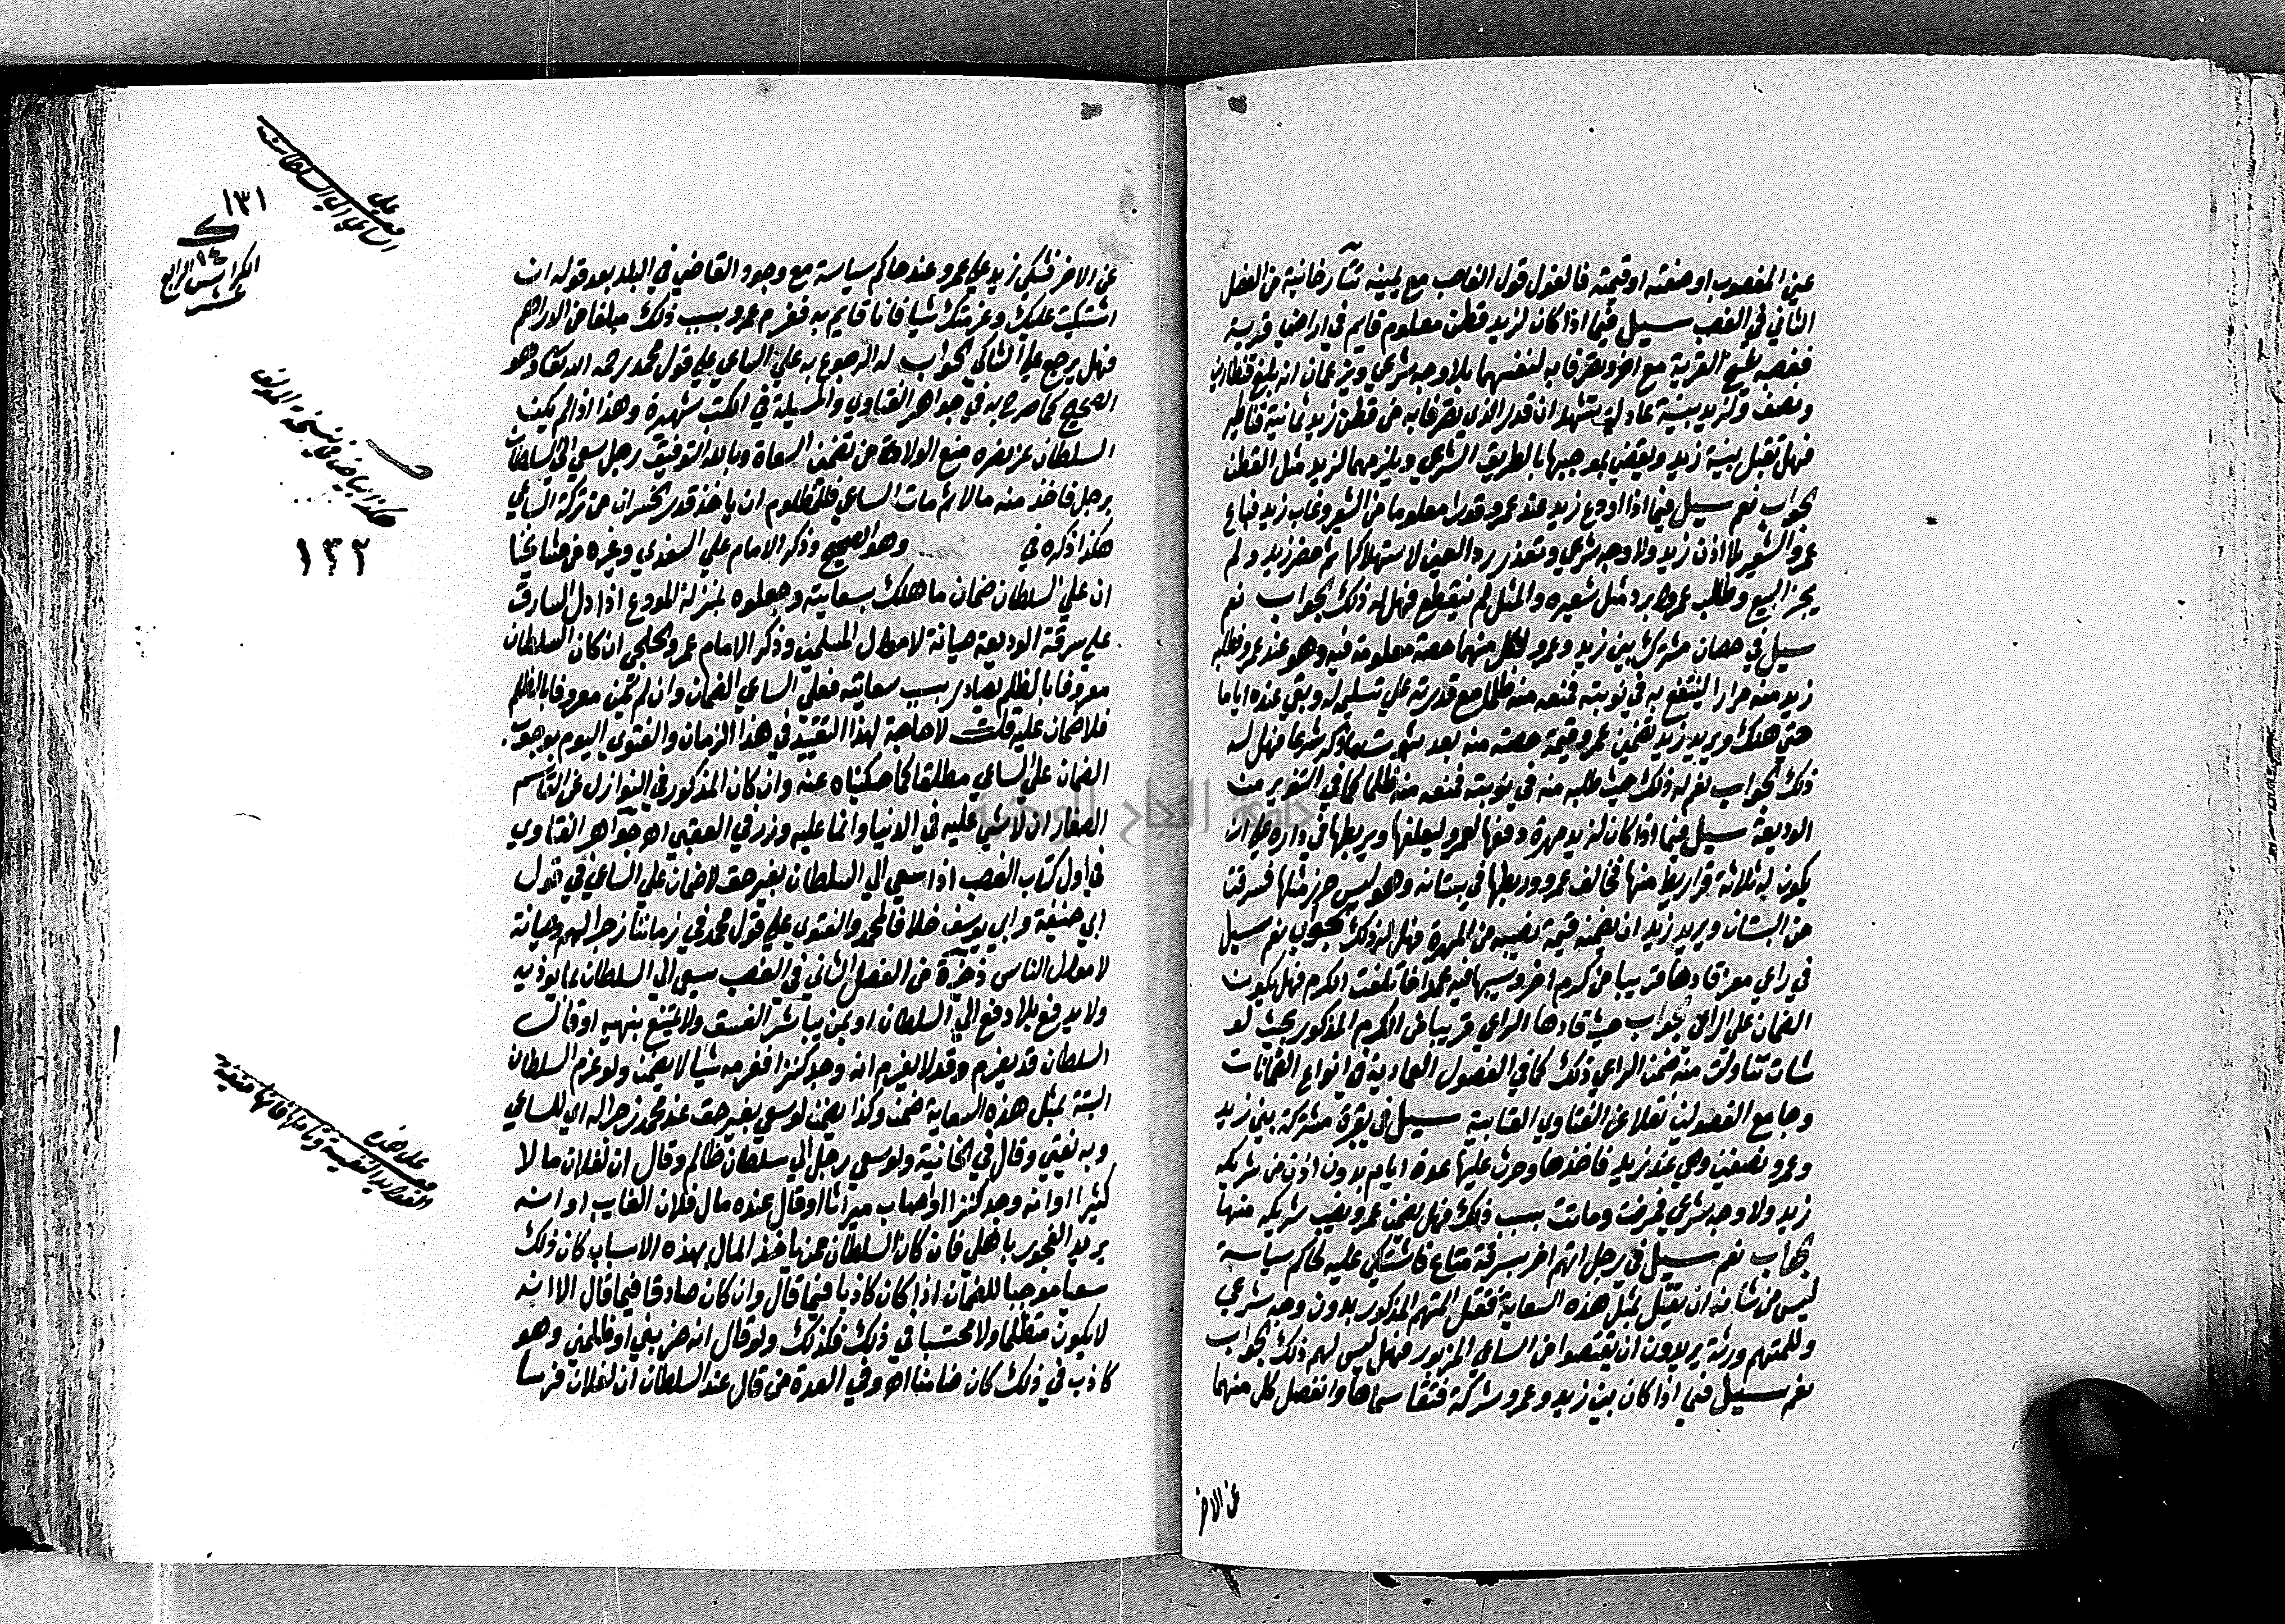 عين المغصوب او صفته او قيمته فالقول قول الغاصب مع يمينه تتارخانية من الفصل
الثاني في الغصب سيل فيما اذا كان لزيد قطن معلوم قايم في اراضي قرية
فغصبه شيخ القرية مع اخر وتصرفا به لنفسهما بلا وجه شرعي ويزعمان انه بلغ قنطارين
ونصف ولزيد بينة عادلة تشهد ان قدر الذي تصرفا به من قطن زيد ثمانية قناطير
فهل تقبل بينة زيد ويقضي بموجبها بالطريق الشرعي ويلزمهما لزيد مثل القطن
الجواب نعم سيل فيما اذا اودع زيد عند عمرو قدرا معلوما من الشعير وغاب زيد فباع
عمرو الشعير بلا اذن زيد ولا وجه شرعي وتعذر رد العين لاستهلاكها ثم حضر زيد ولم
يجز البيع وطلب عمروا برد مثل شعيره والمثل لم ينقطع فهل له ذلك الجواب نعم
سيل في حصان مشترك بين زيد وعمرو لكل منهما حصة معلومة فيه وهو عند عمرو فطلبه
زيد منه مرارا لينتفع به في نوبته فمنعه منه ظلما مع قدرته على تسليمه له وبقي عنده اياما
حتى هلك ويريد زيد تضمين عمرو قيمة حصته منه بعد ثبوت ما ذكر شرعا فهل له
ذلك الجواب نعم له ذلك حيث طلبه منه في نوبته فمنعه منه ظلما كما في التنوير من
الوديعة سيل فيما اذا كان لزيد مهرة دفعها لعمرو ليعلفها ويربطها في داره على ان
يكون له ثلاثة قراريط منها فخالف عمرو وربطها في بستانه وهو ليس حرز مثلها فسرقت
من البستان ويريد زيد ان يضمنه قيمة نصيبه من المهرة فهل له ذلك الجواب نعم سيل
في راعي معز قادها قريبا من كرم اخر وسيبها فيه عمدا فاتلفت الكرم فهل يكون
الضمان على الراعي الجواب حيث قادها الراعي قريبا من الكرم المذكور بحيث لو
شات تناولت منه ضمن الراعي ذلك كما في الفصول العمادية في انواع الضمانات
وجامع الفصولين نقلا عن الفتاوي العتابية سيل في بقرة مشتركة بين زيد
وعمرو نصفين وهي عند زيد فاخذها وحرث عليها عدة ايام بدون اذن من شريكه
زيد ولا وجه شرعي فمرضت وماتت بسبب ذلك فهل يضمن عمرو نصيب شريكه منها
الجواب نعم سيل في رجل اتهم اخر بسرقة متاع فاشتكى عليه لحاكم سياسة
ليس من شانه ان يقتل بمثل هذه السعاية فقتل المتهم المذكور بدون وجه شرعي
وللمتهم ورثة يريدون ان يقتصوا من الساعي المزبور فهل ليس لهم ذلك الجواب
نعم سيل فيما اذا كان بين زيد وعمرو شركة فتقاسماها وانفصل كل منهما
عن الاخر
عن الاخر فشكى زيد على عمرو عند حاكم سياسة مع وجود القاضي في البلد بعد قوله ان
اشتكيت عليك وغرمتك شيا فانا قايم به فغرم عمرو بسبب ذلك مبلغا من الدراهم
فهل يرجع على الشاكي الجواب له الرجوع به على الساعي على قول محمد رحمه الله تعالى وهو
الصحيح كما صرح به في جواهر الفتاوي والمسيلة في الكتب شهيرة وهذا اذا لم يكن
السلطان عز نصره منع الولاة من تضمين السعاة وبالله التوفيق رجل سعى الى السلطان
برجل فاخذ منه مالا ثم مات الساعي فللمظلوم ان ياخذ قدر الخسران من تركة الساعي
هكذا ذكره في وهو الصحيح وذكر الامام علي السغدي وغيره من مشايخنا
ان على السلطان ضمان ما هلك بسعايته وجعلوه بمنزلة المودع اذا دل السارق
على سرقة الوديعة صيانة لاموال المسلمين وذكر الامام عمرو الحلجي ان كان السلطان
معروفا بالظلم يصادر بسبب سعايته فعلى الساعي الضمان وان لم يكن معروفا بالظلم
فلا ضمان عليه قلت لا حاجة لهذا التقييد في هذا الزمان والفتوى اليوم بوجوب
الضمان على الساعي مطلقا كما حكيناه عنه وان كان المذكور في النوازل عن القاسم
الصفار ان لا شي عليه في الدنيا وانما عليه وزر في العقبى اه جواهر الفتاوي
في اول كتاب الغصب اذا سعى الى السلطان بغير حق لا ضمان على الساعي في قول
ابي حنيفة وابي يوسف خلافا لمحمد والفتوى على قول محمد في زماننا زجرا لهم وصيانة
لاموال الناس ذخيرة من الفصل الثاني في الغصب سعى الى السلطان بما يوذيه
ولا يدفع بلا دفع الى السلطان او بمن يباشر الفسق ولا يمتنع بنهيه او قال
السلطان قد يغرم وقد لا يغرم انه وجد كنزا فغرمه شيا لا يضمن ولو غرم السلطان
البتة بمثل هذه السعاية ضمن وكذا يضمن لو سعى بغير حق عند محمد زجرا له اي للساعي
وبه نفتي وقال في الخانية ولو سعى رجل الى سلطان ظالم وقال ان لفلان مالا
كثيرا او انه وجد كنزا او اصاب ميراثا او قال عنده مال فلان الغايب او انه
يريد الفجور باهلي فان كان السلطان ممن ياخذ المال بهذه الاسباب كان ذلك
سعيا موجبا للضمان اذا كان كاذبا فيما قال وان كان صادقا فيما قال الا انه
لا يكون متظلما ولا محتسبا في ذلك فكذلك ولو قال انه ضربني او ظلمني وهو
كاذب في ذلك كان ضامنا اه وفي العدة من قال عند السلطان ان لفلان فرسا
على
الساعي الى السلطان
١٣١
١٤
الكراس الرابع
عشر
هكذا بياض في نسخة المولف
١٣٢